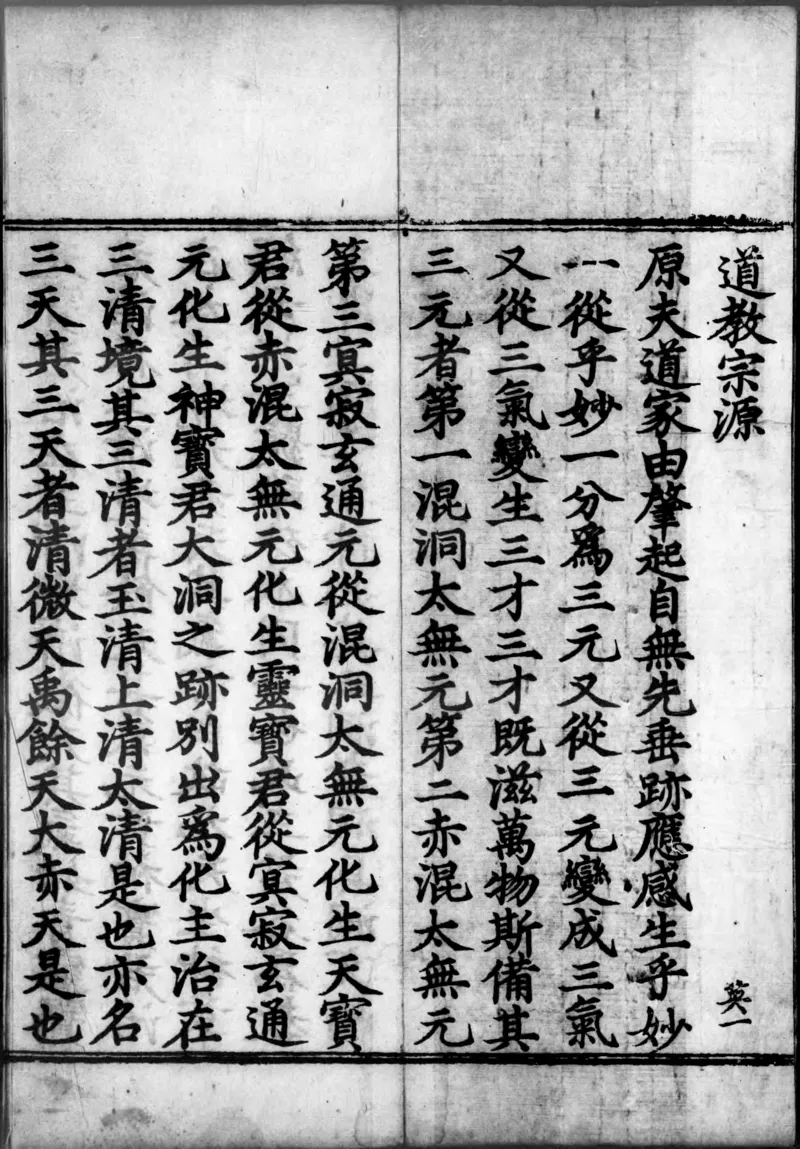 道教宗源
英一
原夫道家由肇起自無先垂跡應感生乎妙
一從乎妙一分爲三元又從三元變成三氣
又從三氣變生三才三才既滋萬物斯備其
三元者第一混洞太無元第二赤混太無元
第三㝠寂玄通元從混洞太無元化生天寶
君從赤混太無元化生靈寶君從㝠寂玄通
元化生神寶君大洞之跡別出爲化主治在
三清境其三清者玉清上清太清是也亦名
三天其三天者清微天禹餘天大赤天是也